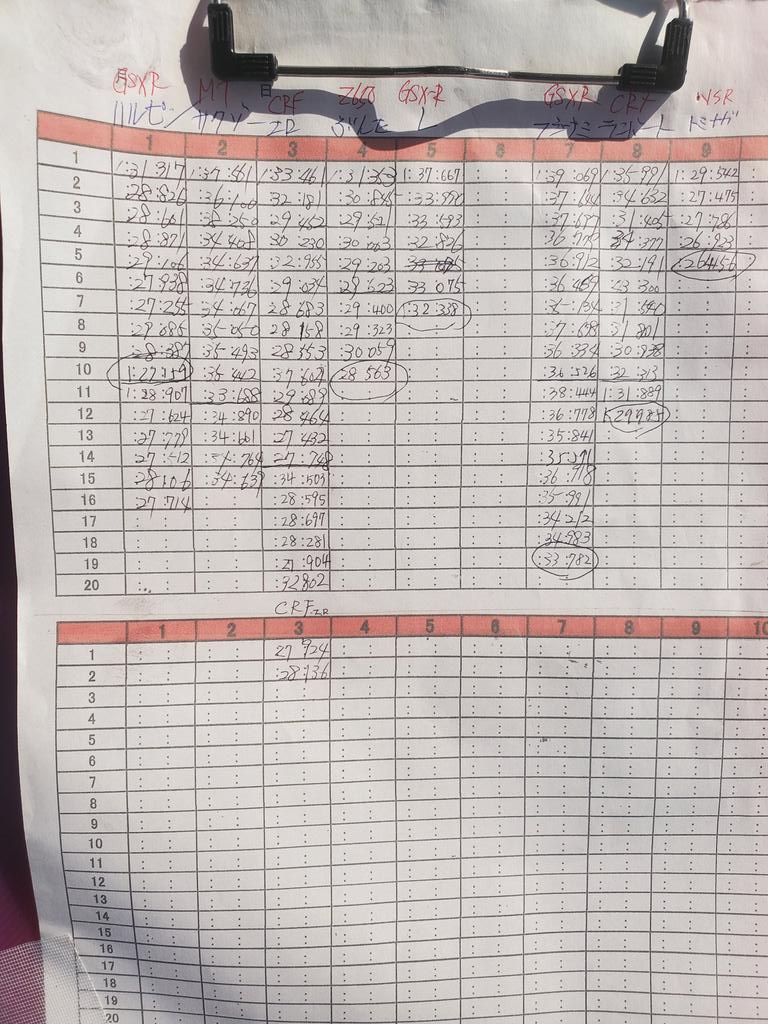 GSXR M7 CRF Z650 GSX-R GSXR CRF NSR
ハルピン サクソー ZR ぶんた L ラスート トミナガ
1 2 3 4 5 6 7 8 9
1 1:31:317 1:37:461 1:33:461 1:31:353 1:37:667 : : 1:39:069 1:35:991 1:29:542
2 28:826 36:100 32:181 :30:845 :33:990 : : :37:144 :34:632 :27:475
3 28:601 38:250 29:452 :29:521 :33:593 : : :37:677 :31:405 :27:786
4 :28:871 :34:408 30:230 :30:003 :32:826 : : 36:779 34:377 26:923
5 29:106 :34:637 :32:955 :29:203 : : 36:912 :32:191 :26:456
6 :27:938 :34:736 :29:034 :28:623 33:075 : : :36:469 43:300
7 :27:255 :34:067 28:683 :29:400 :32:338 : : :35:134 :31:540
8 :29:085 :35:050 28:158 :29:323 : : :37:158 :31:801
9 :28:387 :35:493 28:553 :30:059 : : 36:334 :30:938
10 1:27:159 :35:442 37:602 28:563 : : :36:526 32:313
11 1:28:907 :33:688 29:689 : : :38:444 1:31:889
12 :27:624 :34:890 28:464 : : :36:778 1:29:985
13 :27:779 :34:661 27:432 : : :35:841
14 27:512 :34:764 :27:748 : : :35:571
15 28:106 :34:639 :34:503 : : 36:918
16 27:714 : : :28:595 : : 35:991
17 : : : : :28:697 : : 34:212
18 : : : : :28:281 : : 34:983
19 : : : : :27:904 : : :33:782
20 : : : : :32:802
CRF ZR
1 2 3 4 5 6 7 8 9 10
1 27:924
2 :28:136
3
4
5
6
7
8
9
10
11
12
13
14
15
16
17
18
19
20